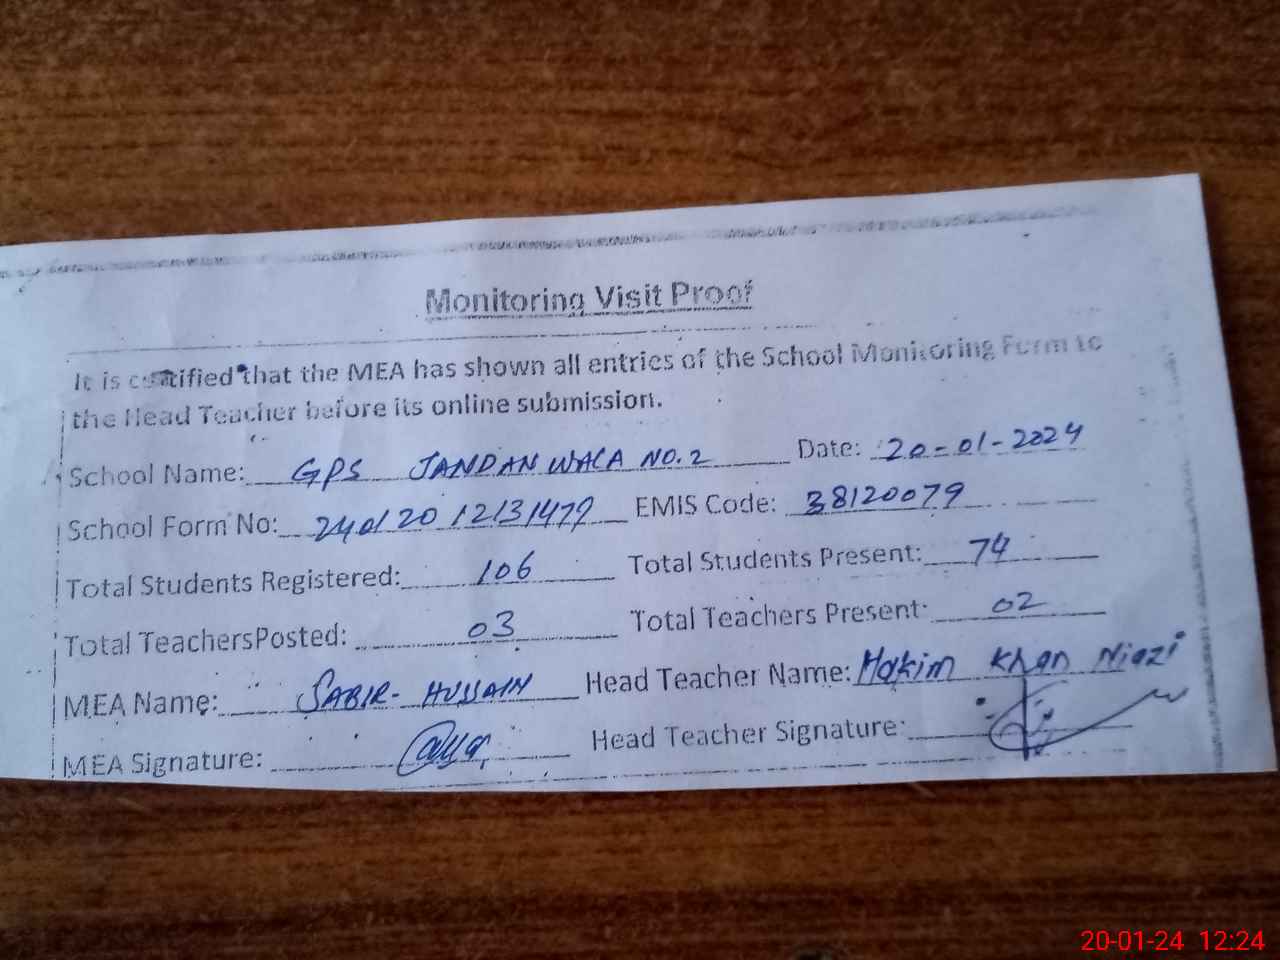 Monitoring Visit Proof
It is certified that the MEA has shown all entries of the School Monitoring Form to
the Head Teacher before its online submission.
School Name: GPS JANDANWALA NO.2 Date: 20-01-2024
School Form No: EMIS Code: 38120079
Total Students Registered: 106 Total Students Present: 74
Total TeachersPosted: 03 Total Teachers Present: 02
MEA Name: SABIR HUSSAIN Head Teacher Name: Hakim Khan Niazi
MEA Signature: Head Teacher Signature:
20-01-24 12:24